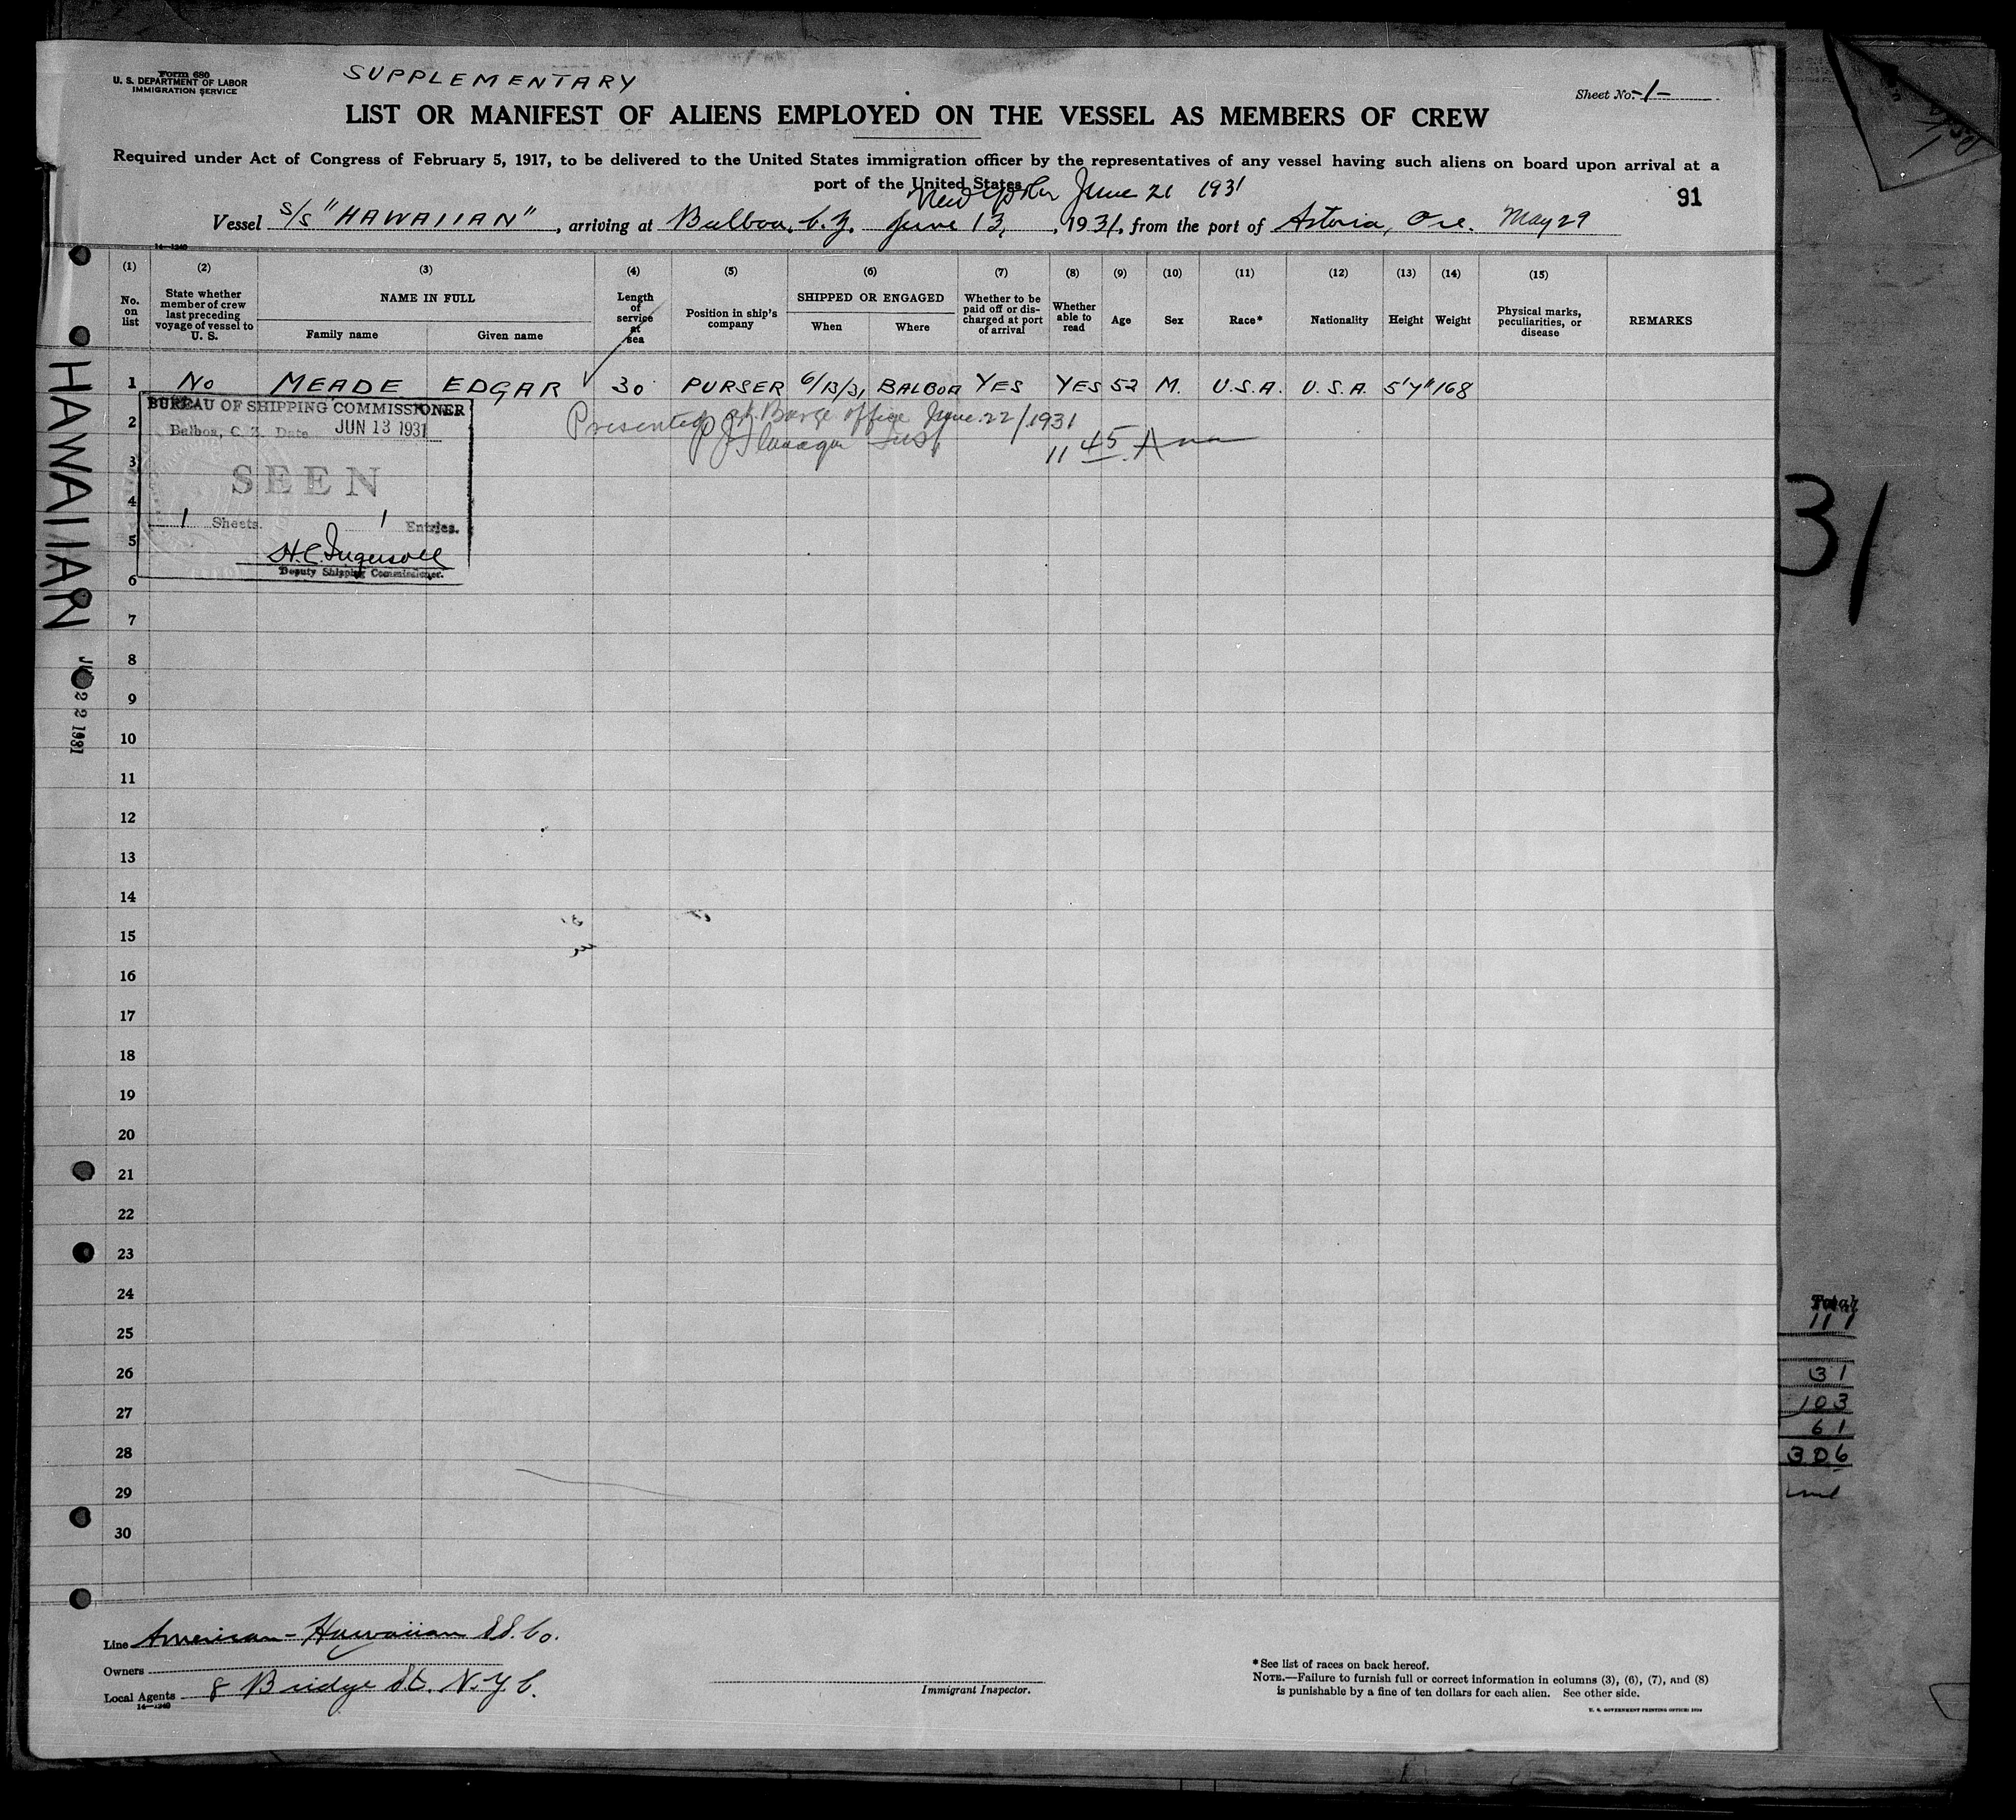 Form 680
U. S. DEPARTMENT OF LABOR
IMMIGRATION SERVICE
SUPPLEMENTARY
Sheet No. -1-
LIST OR MANIFEST OF ALIENS EMPLOYED ON THE VESSEL AS MEMBERS OF CREW
Required under Act of Congress of February 5, 1917, to be delivered to the United States immigration officer by the representatives of any vessel having such aliens on board upon arrival at a
port of the United States
New York June 21 1931
91
Vessel S/S "HAWAIIAN", arriving at Balboa, C.Z. June 13, 1931, from the port of Astoria, Ore. May 29
14—1240
(1) (2) (3) (4) (5) (6) (7) (8) (9) (10) (11) (12) (13) (14) (15)
No. on list
State whether member of crew last preceding voyage of vessel to U. S.
NAME IN FULL
Family name
Given name
Length of service at sea
Position in ship's company
SHIPPED OR ENGAGED
When
Where
Whether to be paid off or discharged at port of arrival
Whether able to read
Age
Sex
Race*
Nationality
Height
Weight
Physical marks, peculiarities, or disease
REMARKS
1 No MEADE EDGAR 30 PURSER 6/13/31 BALBOA YES YES 52 M. U.S.A. U.S.A. 5'7" 168
BUREAU OF SHIPPING COMMISSIONER
Balboa, C. Z. Date JUN 13 1931
SEEN
1 Sheets. 1 Entries.
H.C. Ingersoll
Deputy Shipping Commissioner.
Presented at Barge office June 22/1931
Insp
11 45 Am
2
3
4
5
6
7
8
9
10
11
12
13
14
15
16
17
18
19
20
21
22
23
24
25
26
27
28
29
30
HAWAIIAN
22 1931
31
Total
111
31
103
61
306
Line American-Hawaiian S.S. Co.
Owners
Local Agents 8 Bridge St. N.Y.C.
14—1240
Immigrant Inspector.
*See list of races on back hereof.
NOTE.—Failure to furnish full or correct information in columns (3), (6), (7), and (8)
is punishable by a fine of ten dollars for each alien. See other side.
U. S. GOVERNMENT PRINTING OFFICE: